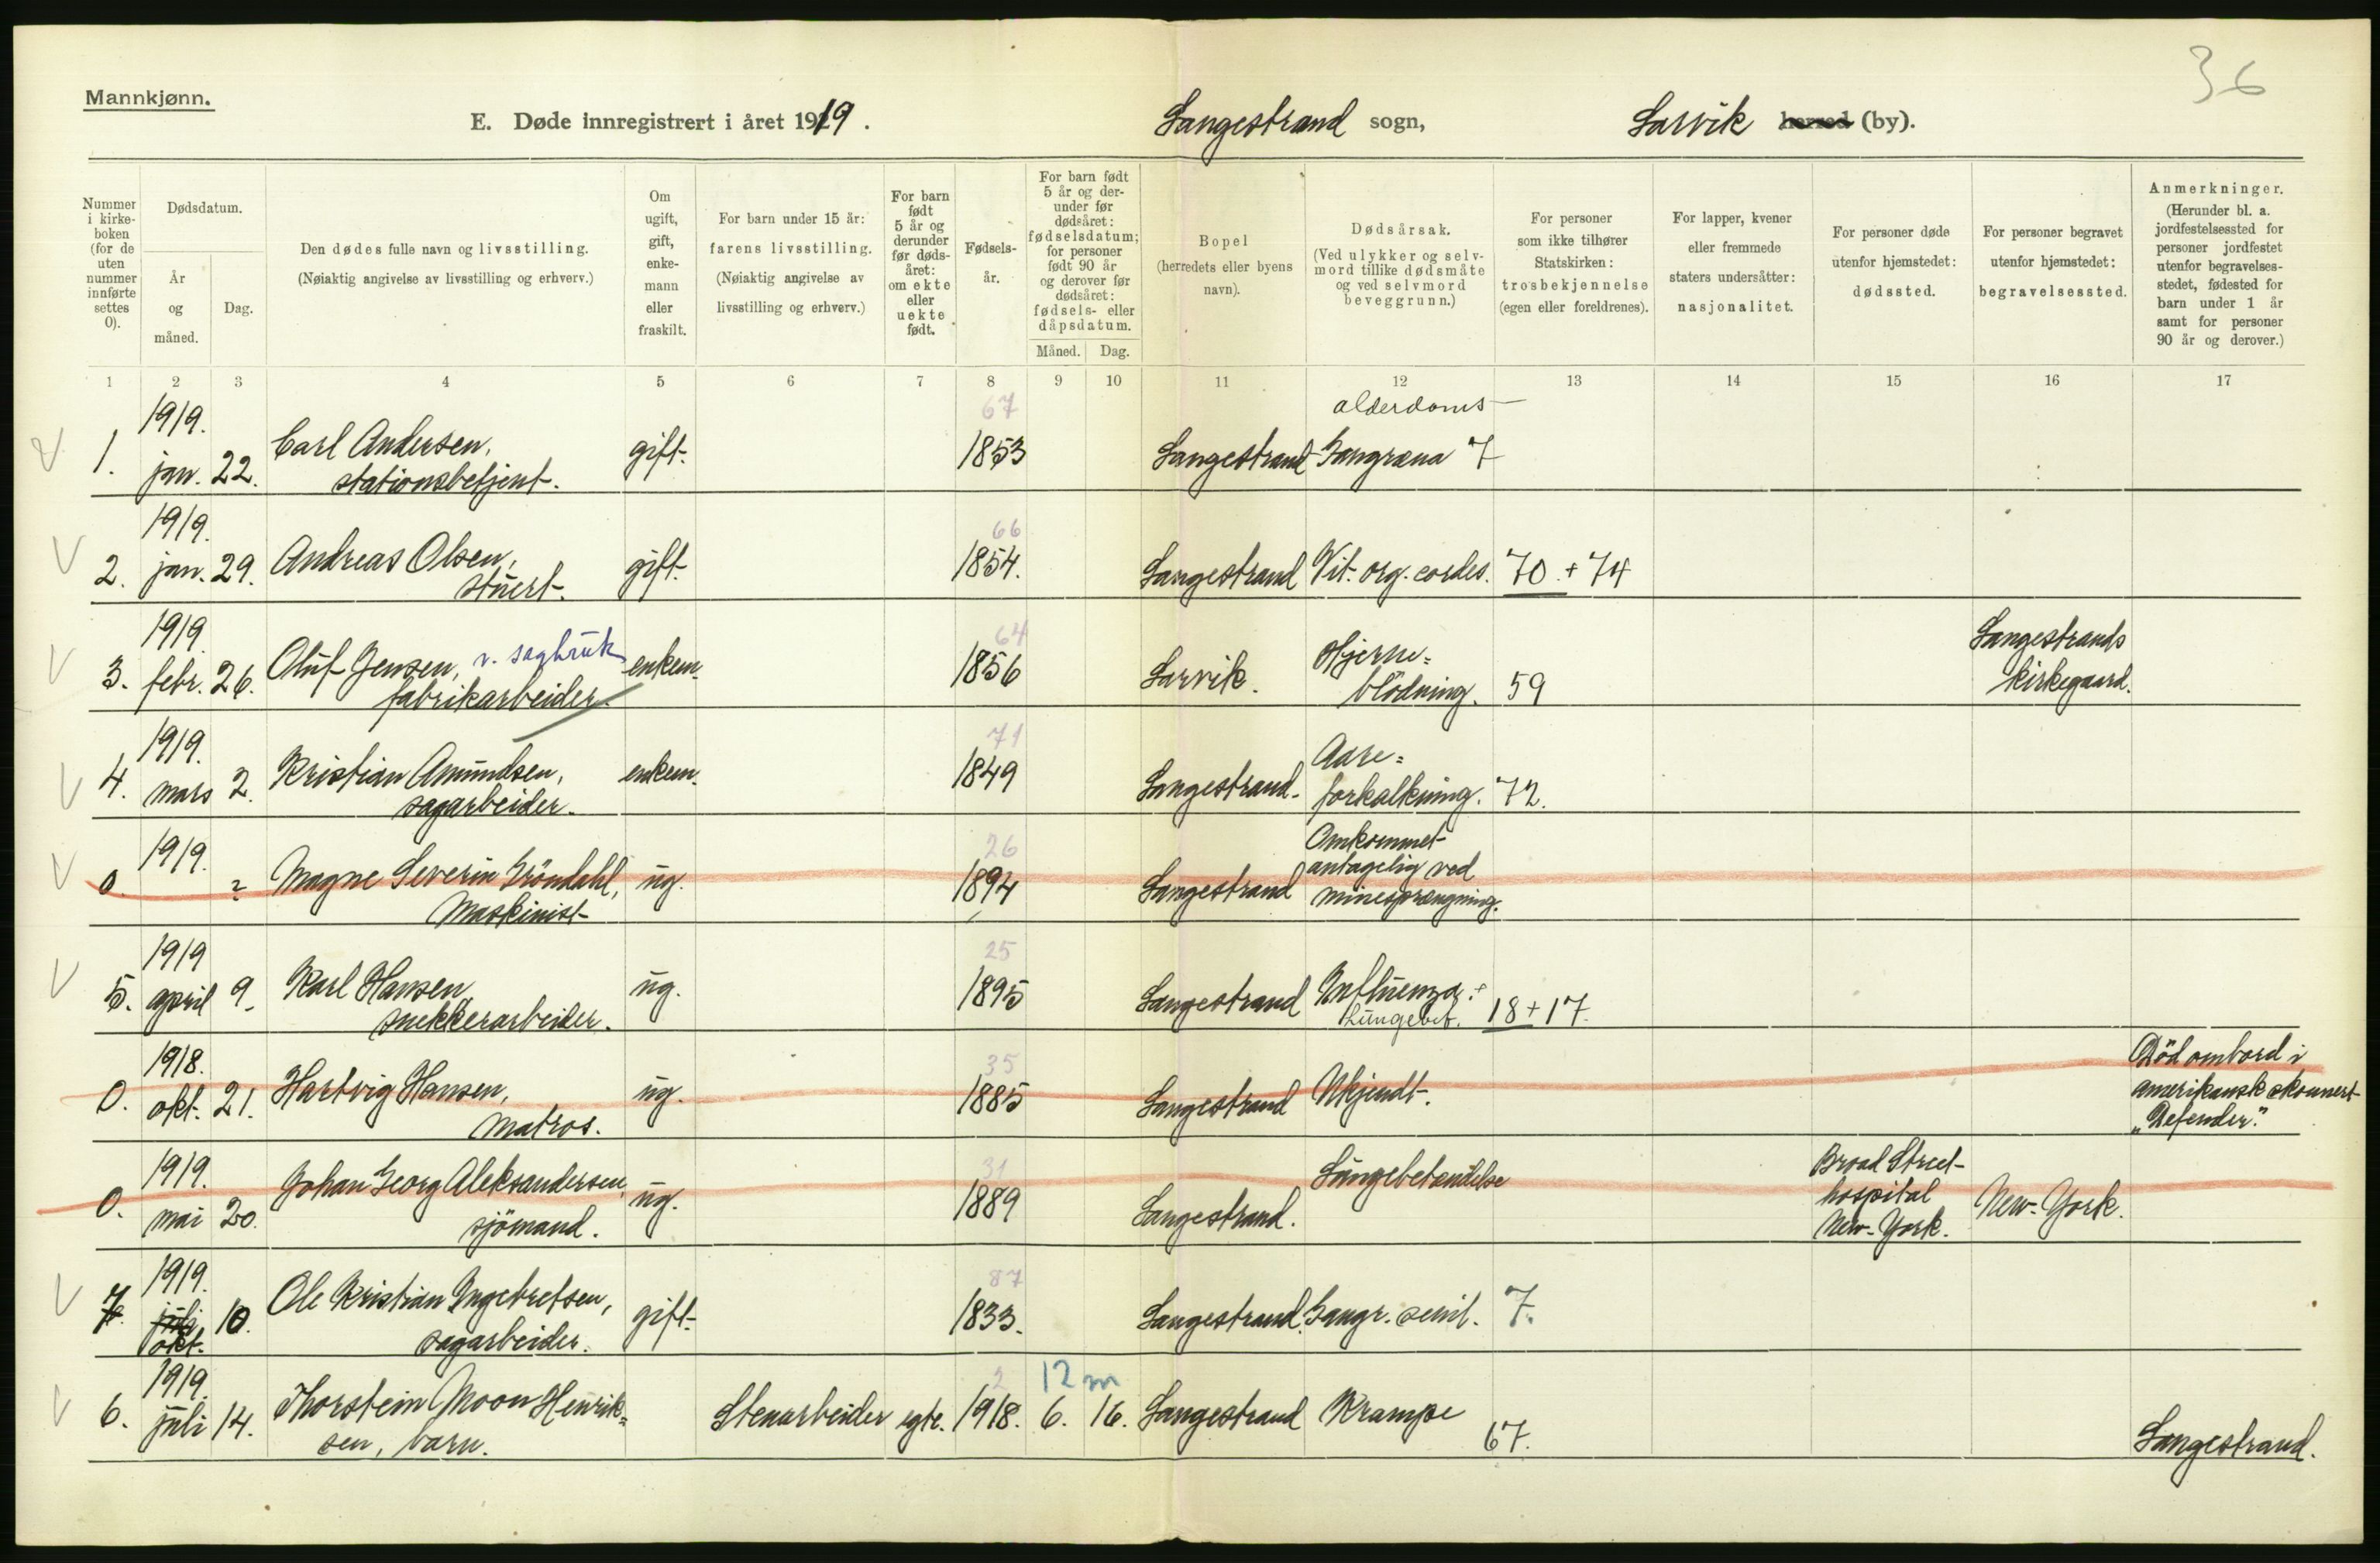 36
Mannkjønn.
E. Døde innregistrert i året 1919.
Langestrand sogn,
Larvik herred (by).
Nummer i kirkeboken (for de uten nummer innførte settes 0).
Dødsdatum.
År og måned.
Dag.
Den dødes fulle navn og livsstilling.
(Nøiaktig angivelse av livsstilling og erhverv.)
Om ugift, gift, enkemann eller fraskilt.
For barn under 15 år: farens livsstilling.
(Nøiaktig angivelse av livsstilling og erhverv.)
For barn født 5 år og derunder før dødsåret: om ekte eller uekte født.
Fødselsår.
For barn født 5 år og derunder før dødsåret: fødselsdatum; for personer født 90 år og derover før dødsåret: fødsels- eller dåpsdatum.
Måned. Dag.
Bopel
(herredets eller byens navn).
Dødsårsak.
(Ved ulykker og selvmord tillike dødsmåte og ved selvmord beveggrunn.)
For personer som ikke tilhører Statskirken: trosbekjennelse
(egen eller foreldrenes).
For lapper, kvener eller fremmede staters undersåtter: nasjonalitet.
For personer døde utenfor hjemstedet: dødssted.
For personer begravet utenfor hjemstedet: begravelsessted.
Anmerkninger.
(Herunder bl. a. jordfestelsessted for personer jordfestet utenfor begravelsesstedet, fødested for barn under 1 år samt for personer 90 år og derover.)
1 2 3 4 5 6 7 8 9 10 11 12 13 14 15 16 17
1919. 67 alderdoms
1. jan. 22. Carl Andersen, gift. 1853 Langestrand Gangræna 7
stationsbetjent.
1919. 66
2. jan. 29. Andreas Olsen, gift. 1854. Langestrand Vit. org. cordes. 70 + 74
stuert.
1919. 64 Hjerne= Langestrands
3. febr. 26. Oluf Jensen, v. sagbruk enkem. 1856 Larvik. blödning. 59 kirkegaard.
fabrikarbeider.
1919. 71 Aare=
4. mars 2. Kristian Amundsen, enkem. 1849 Langestrand. forkalkning. 72.
sagarbeider.
1919. 26 Omkommet
0. ? Magne Severin Gröndahl, ug. 1894 Langestrand antagelig ved
Maskinist minesprængning.
1919 25
5. april 9. Karl Hansen ug. 1895 Langestrand Influenza. +
snekkerarbeider. Lungebet. 18 + 17.
1918. 35 Död ombord i
0. okt. 21. Hartvig Hansen, ug. 1885 Langestrand Ukjendt. amerikansk skonnert
Matros. "Defender".
1919. 31 Lungebetændelse Broad Street
0. mai 20. Johan Georg Aleksandersen, ug. 1889 Langestrand. hospital New-York.
sjömand. New-York.
1919. 87
7. juli 10. Ole Kristian Ingebretsen, gift. 1833. Langestrand. Gangr. senil. 7.
okt. sagarbeider.
1919. 2 12 m
6. juli 14. Thorstein Moon Henrik= Stenarbeider egte. 1918. 6. 16. Langestrand Krampe 67.
sen, barn. Langestrand.